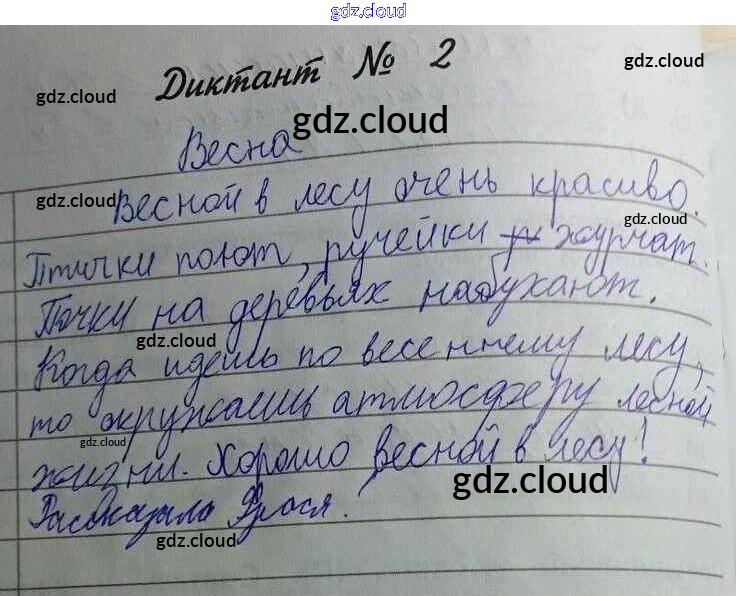 gdz.cloud
Диктант № 2
gdz.cloud
gdz.cloud
gdz.cloud
Весна
Весной в лесу очень красиво.
gdz.cloud
gdz.cloud
Птички поют, ручейки журчат.
Почки на деревьях набухают.
gdz.cloud
Когда идешь по весеннему лесу,
то окружаешь атмосферу лесной
gdz.cloud
жизни. Хорошо весной в лесу!
gdz.cloud
Рассказала Фрося.
gdz.cloud